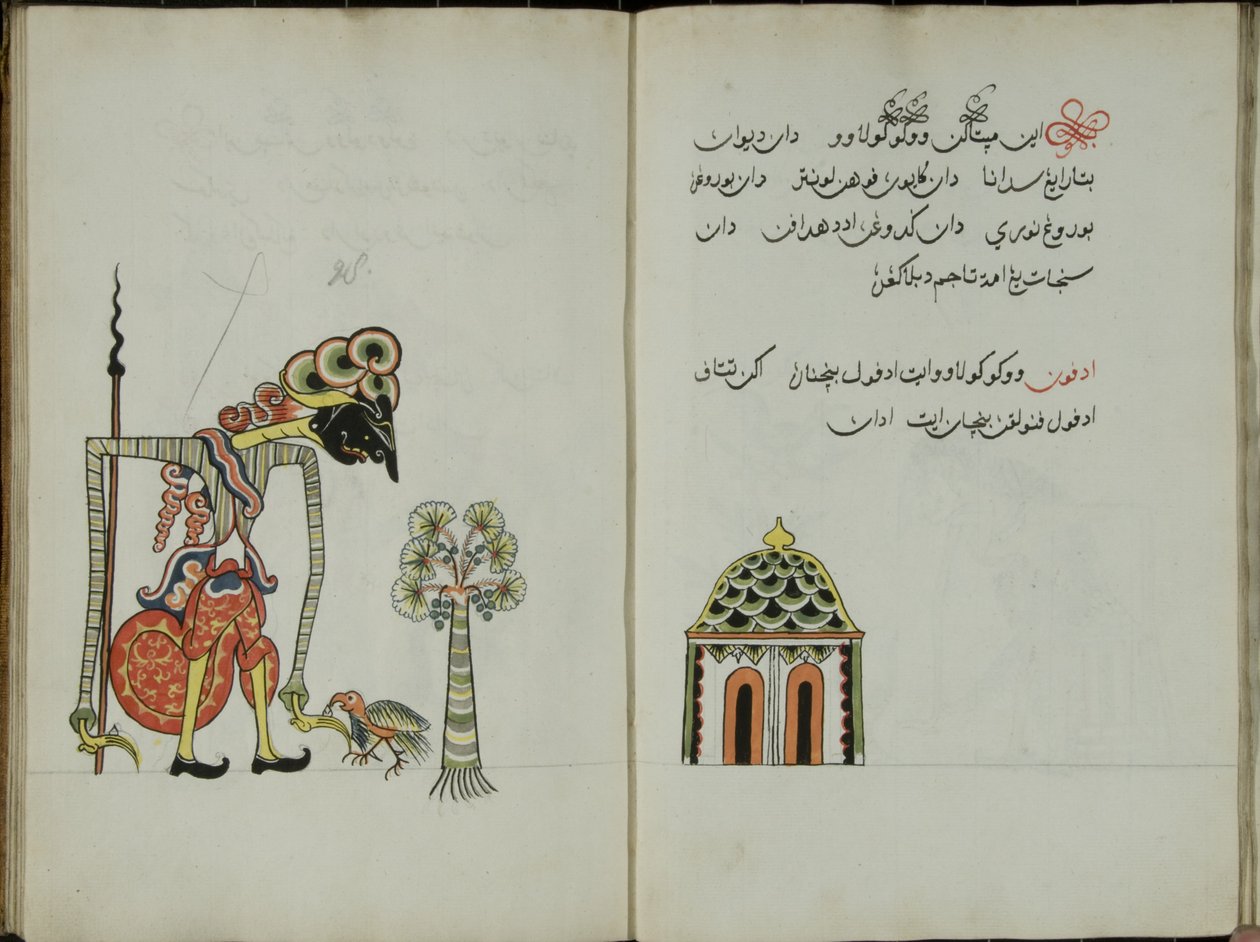 اين ڤتاكن ووكوكولاوو دان ديوان
بتارايڠ سدانا دان كايون فوهن لونتر دان بوروڠن
بوروڠ نوري دان كدوڠن اد دهدافن دان
سنجات يڠ امة تاجم دبلاكڠن
ادفون ووكوكولاوو ايت ادفول بنچنان اكن تتاف
ادفول فنولقن بنچان ايت ادان